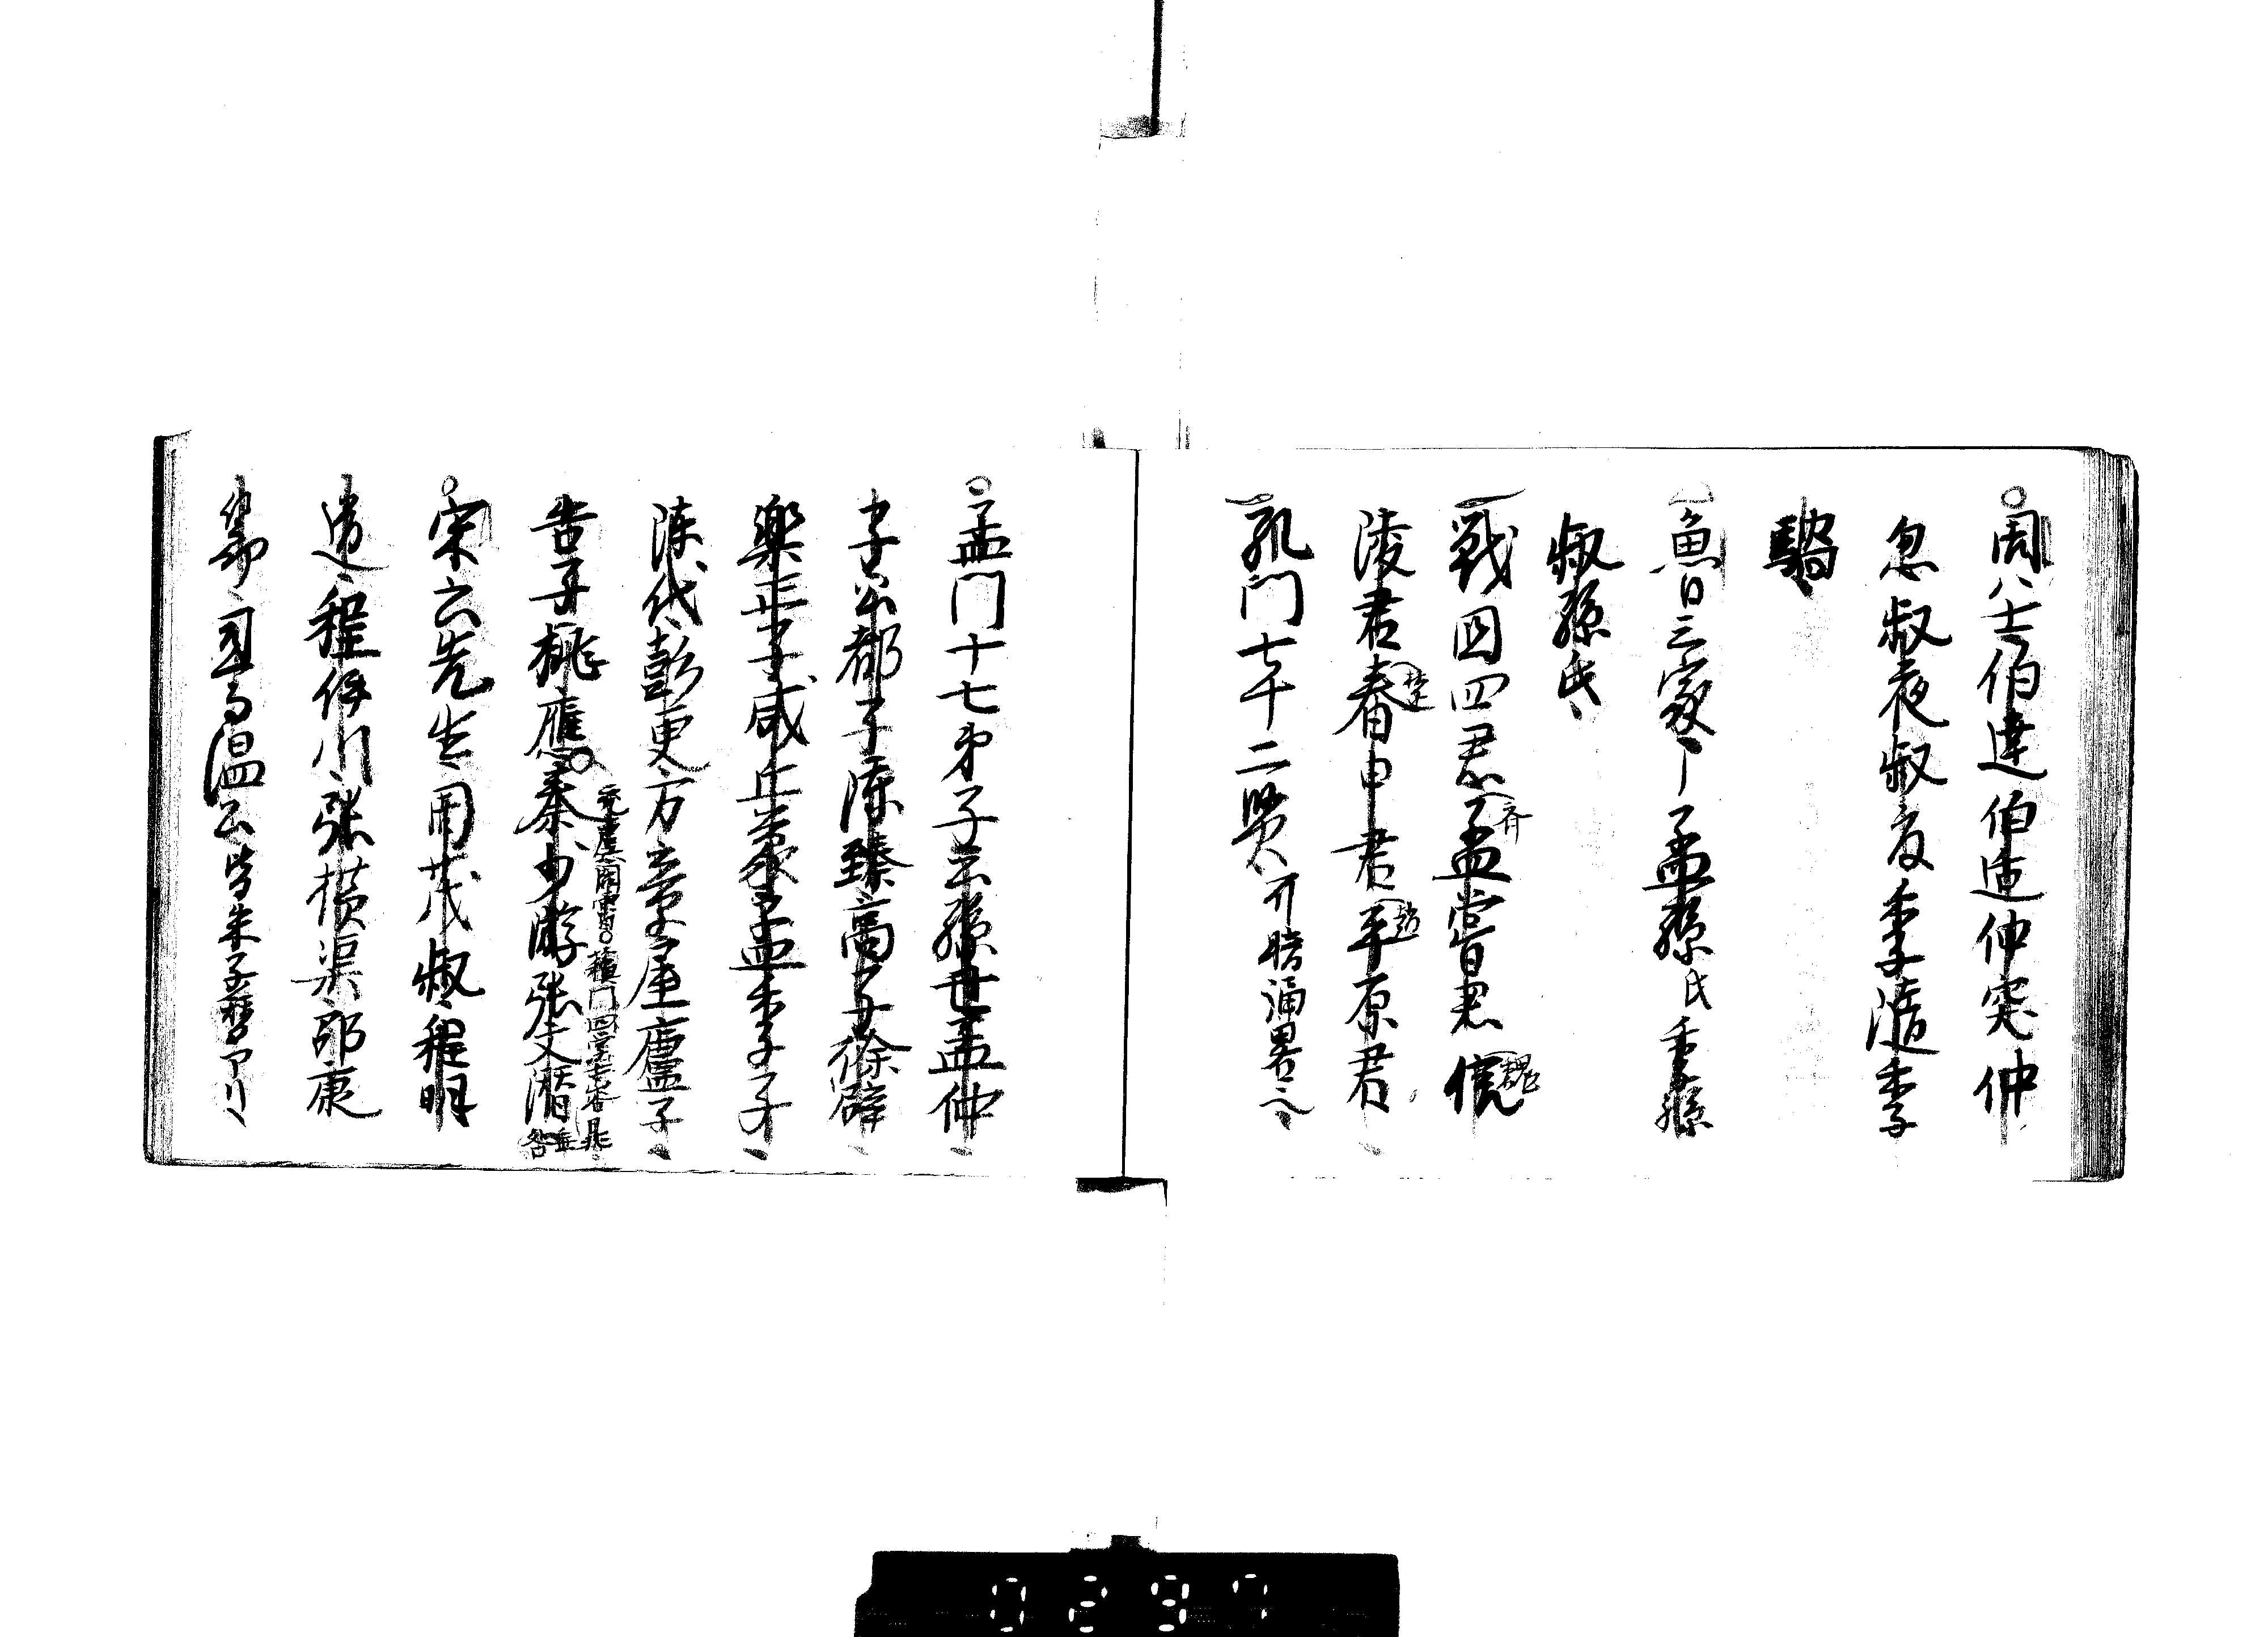 周八士伯達伯适仲突仲
忽叔夜叔夏季随季
騧
魯三家孟孫氏季孫
叔孫氏
戦国四君孟嘗君信
齊
魏
陵君春申君平原君
楚
趙
孔門七十二賢
孟門十七弟子公孫丑孟仲
子公都子陳臻高子徐辟
樂正子咸丘蒙孟季子
陳代彭更万章屋廬子
告子桃應秦少游張文潜
宋六先生周茂叔程明
道程伊川張横渠邵康
節司馬温公皆朱子